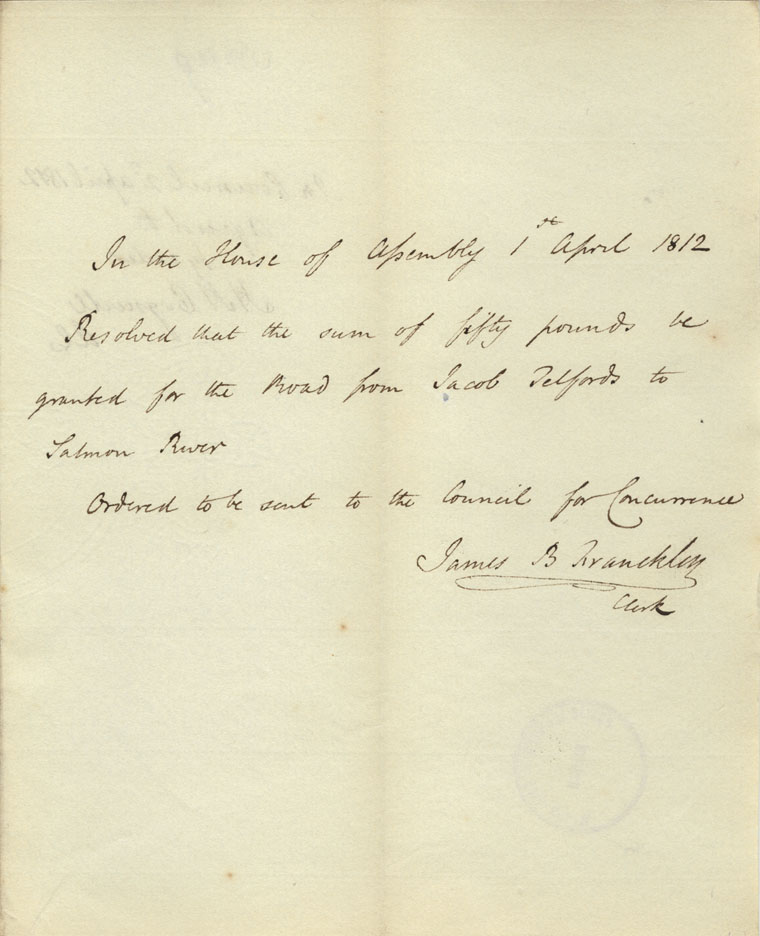 In the House of Assembly 1st April 1812
Resolved that the sum of fifty pounds be
granted for the Road from Jacob Telfords to
Salmon River
Ordered to be sent to the Council for Concurrence
James B Franckley
Clerk